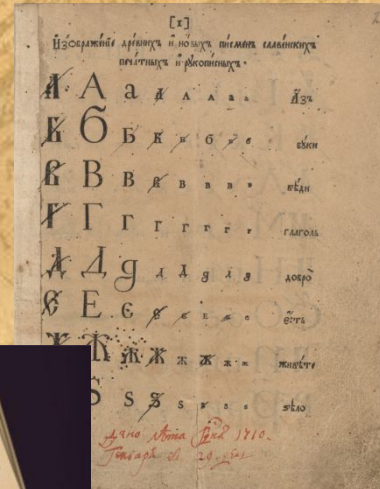 [1]
Изѡбраженїе древнихъ и новыхъ писменъ славенскихъ
печатныхъ и рукописныхъ.
А А а А А а а Азъ
Б Б Б б б буки
В В В в в в в вѣди
Г Г Г г г г г глаголь
Д Д д д д д добро
Є Е Є е е е есть
Ж Ж Ж Ж ж ж ж живѣте
Ѕ Ѕ Ѕ ѕ ѕ ѕ ѕ ѕѣло
Дано лѣта 1710.